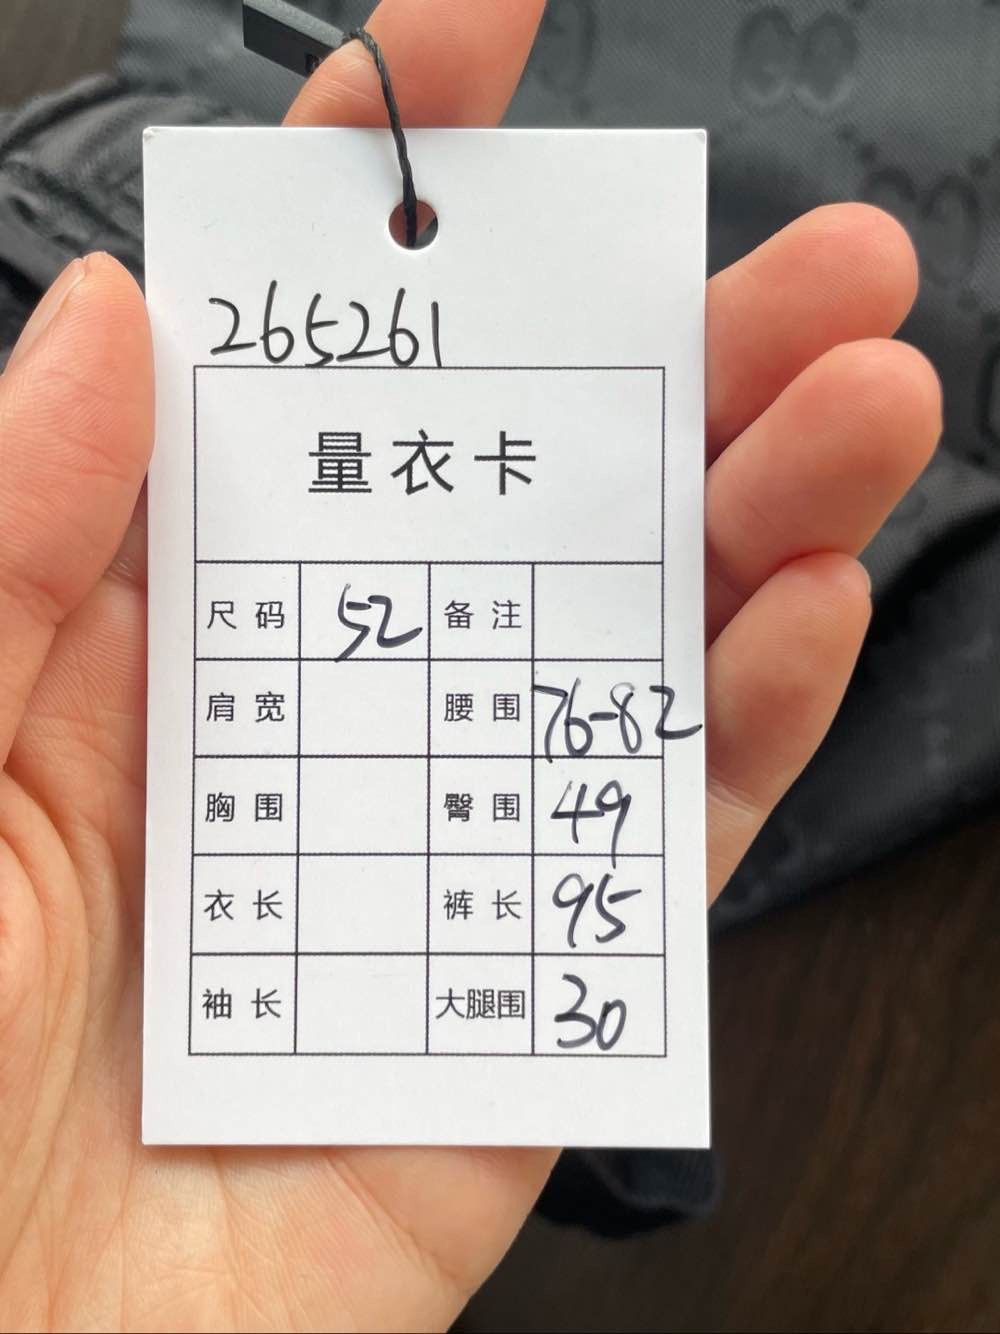 265261
量衣卡
尺码 52 备注
肩宽 腰围 76-82
胸围 臀围 49
衣长 裤长 95
袖长 大腿围 30